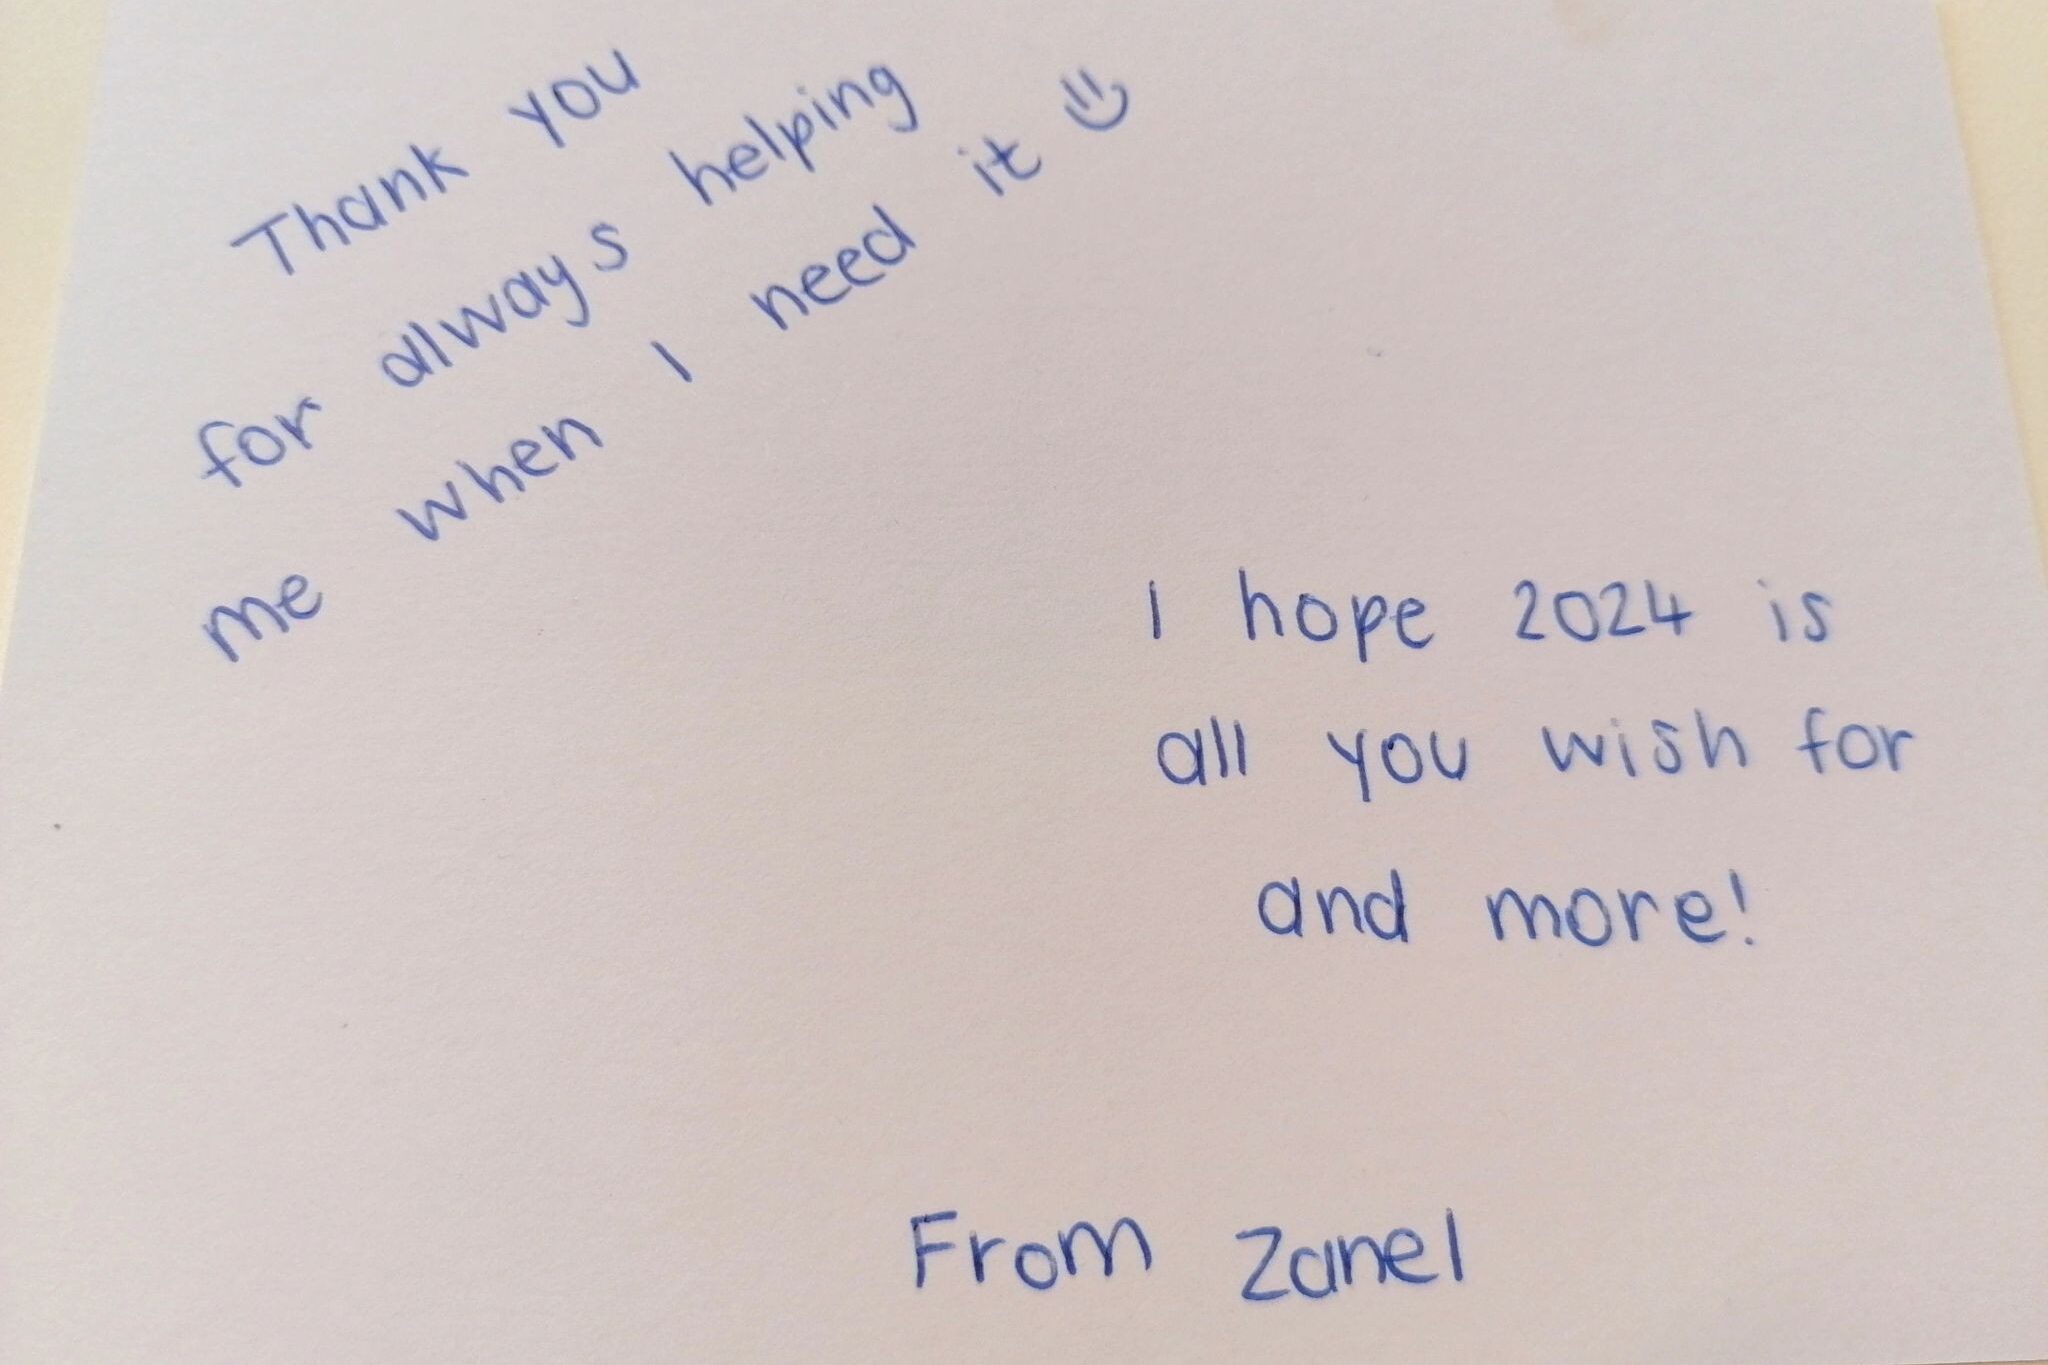 Thank you
for always helping
me when I need it
I hope 2024 is
all you wish for
and more!
From Zanel